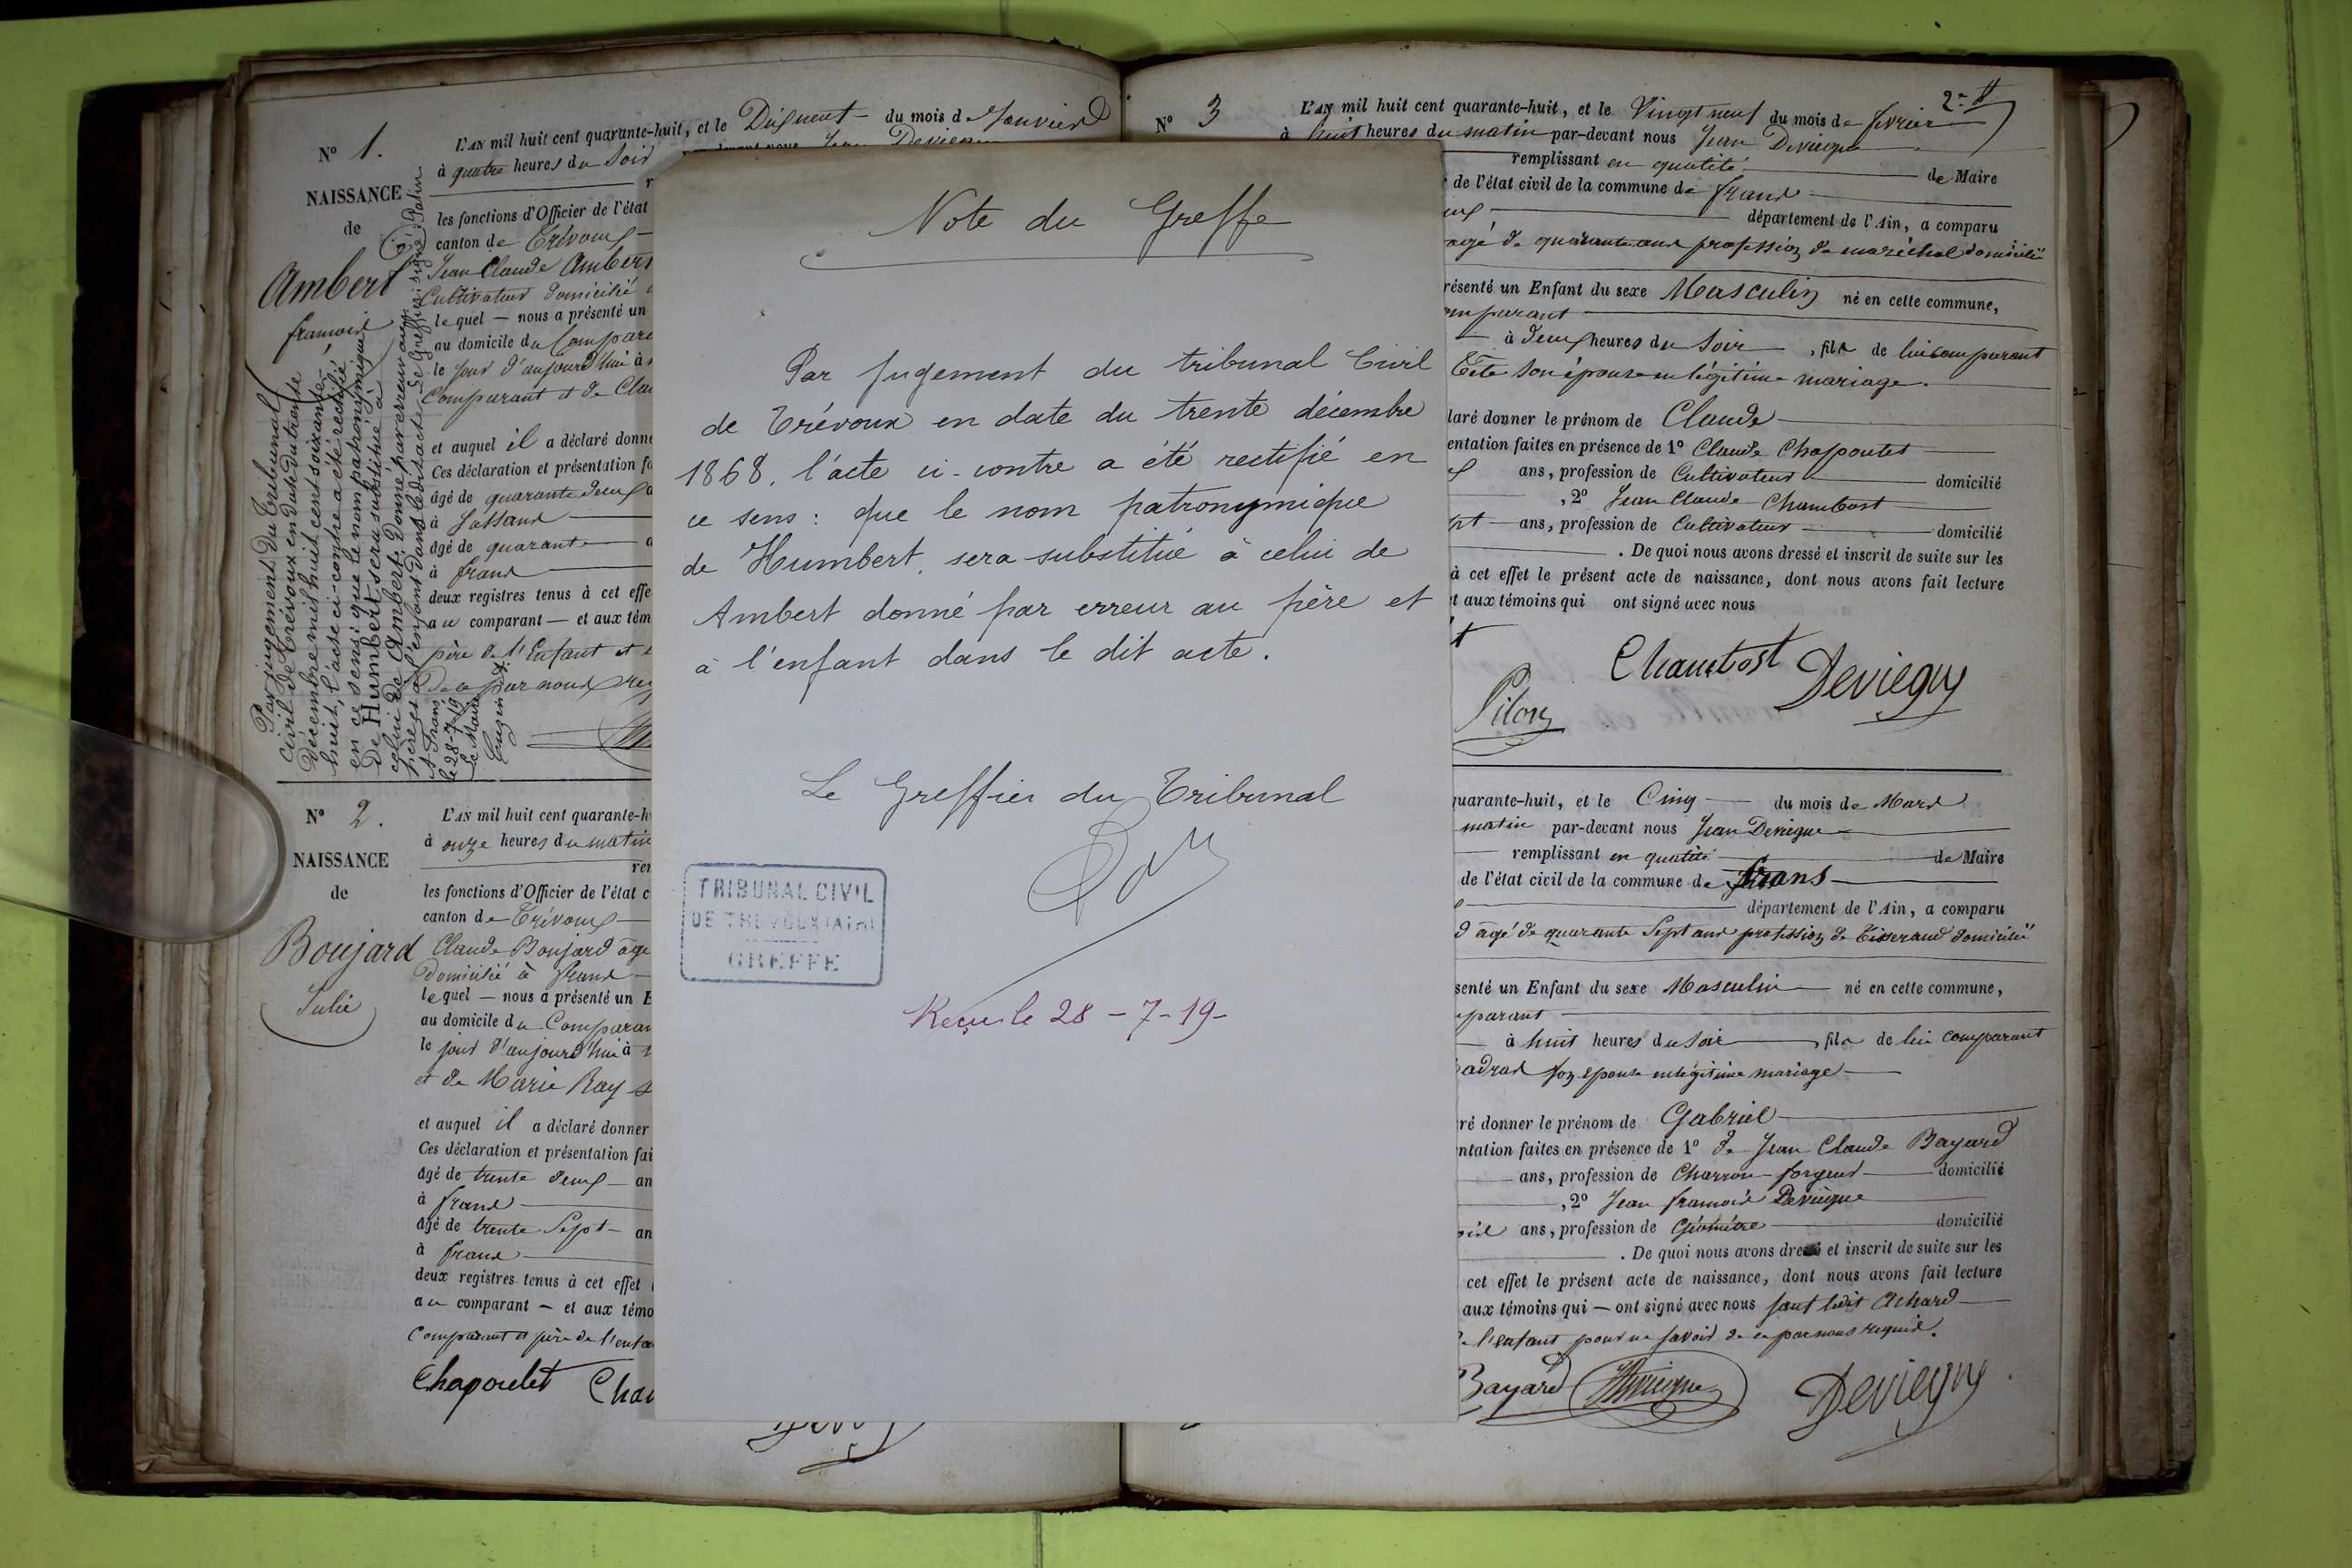 N° 1.
NAISSANCE
de
Ambert
françois
Par jugement du tribunal
civil de Trévoux en date du trente
Décembre mil huit cent soixante-
huit, l'acte ci-contre a été rectifié
en ce sens: que le nom patronymique
De Humbert sera substitué à
celui de Ambert donné par erreur au
père et à l'enfant dans le dit acte. Le Greffier: signé: Patin
A Frans
le 28-7-19
Le Maire
L'AN mil huit cent quarante-huit, et le Dixneuf du mois de Janvier
à quatre heures du Soir
les fonctions d'Officier de l'état
canton de Trévoux
Jean Claude Ambert
Cultivateur domicilié
lequel — nous a présenté un
au domicile du Compara
le jour d'aujourd'hui à
Comparant et de Clau
et auquel il a déclaré donne
Ces déclaration et présentation fa
âgé de quarante deux a
à Jassans
âgé de quarante a
à frans
deux registres tenus à cet effe
au comparant — et aux tém
père de l'Enfant et
de ce par nous req
N° 2.
NAISSANCE
de
Boujard
Julie
L'AN mil huit cent quarante-h
à onze heures du matin
rem
les fonctions d'Officier de l'état c
canton de Trévoux
Claude Boujard âgé
Domicilié à frans
lequel — nous a présenté un E
au domicile du Comparan
le jour d'aujourd'hui à
et de Marie Ray s
et auquel il a déclaré donner
Ces déclaration et présentation fai
âgé de trente deux an
à frans
âgé de trente Sept an
à frans
deux registres tenus à cet effet
au comparant — et aux témo
Comparant et père de l'enfa
Chapoulet Cha
Note du Greffe
Par jugement du tribunal Civil
de Trévoux en date du trente décembre
1868, l'acte ci-contre a été rectifié en
ce sens: que le nom patronymique
de Humbert, sera substitué à celui de
Ambert donné par erreur au père et
à l'enfant dans le dit acte.
Le Greffier du Tribunal
TRIBUNAL CIVIL
DE TREVOUX (AIN)
GREFFE
Reçu le 28-7-19-
2
N° 3
L'AN mil huit cent quarante-huit, et le Vingt neuf du mois de février
à huit heures du matin par-devant nous Jean Deviegue
remplissant en qualité de Maire
de l'état civil de la commune de frans
département de l'Ain, a comparu
agé de quarante ans profession de maréchal domicilié
résenté un Enfant du sexe Masculin né en cette commune,
mparant
à deux heures du Soir, fils de lui comparant
Tête son épouse en légitime mariage.
laré donner le prénom de Claude
entation faites en présence de 1° Claude Chapoulet
ans, profession de Cultivateur domicilié
, 2° Jean Claude Chambost
pt ans, profession de Cultivateur domicilié
. De quoi nous avons dressé et inscrit de suite sur les
à cet effet le présent acte de naissance, dont nous avons fait lecture
t aux témoins qui ont signé avec nous
Pilon Chambost Deviegue
quarante-huit, et le Cinq du mois de Mars
matin par-devant nous Jean Deviegue
remplissant en qualité de Maire
de l'état civil de la commune de frans
département de l'Ain, a comparu
d âgé de quarante Sept ans profession de Tisserand domicilié
senté un Enfant du sexe Masculin né en cette commune,
parant
à huit heures du Soir, fils de lui comparant
son Epouse en légitime mariage
ré donner le prénom de Gabriel
ntation faites en présence de 1° de Jean Claude Bayard
ans, profession de Charron-forgeur domicilié
, 2° Jean françois Deviegue
ans, profession de Géomètre domicilié
. De quoi nous avons dressé et inscrit de suite sur les
cet effet le présent acte de naissance, dont nous avons fait lecture
aux témoins qui — ont signé avec nous sauf ledit Achard
l'enfant pour ne savoir de ce par nous requis.
Bayard Deviegue Deviegue